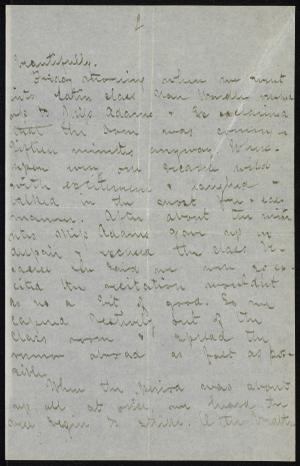 2
beautifully.
Friday morning when we went
into Latin class Nan Wardle rushed
up to Miss Adams & exclaimed
that the Dean was coming in
fifteen minutes anyway. Where-
upon every one became wild
with excitement & laughed &
talked in the most
manner. After about ten min-
utes Miss Adams gave up in
despair & excused the class be-
cause she said we were so ex-
cited the recitation wouldn't
do us a bit of good. So we
capered festively out of the
class room & spread the
rumor abroad as fast as pos-
sible.
When the period was about
up all at once we heard the
bell begin to strike. All the